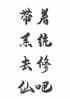 带着
系统
去修
仙吧